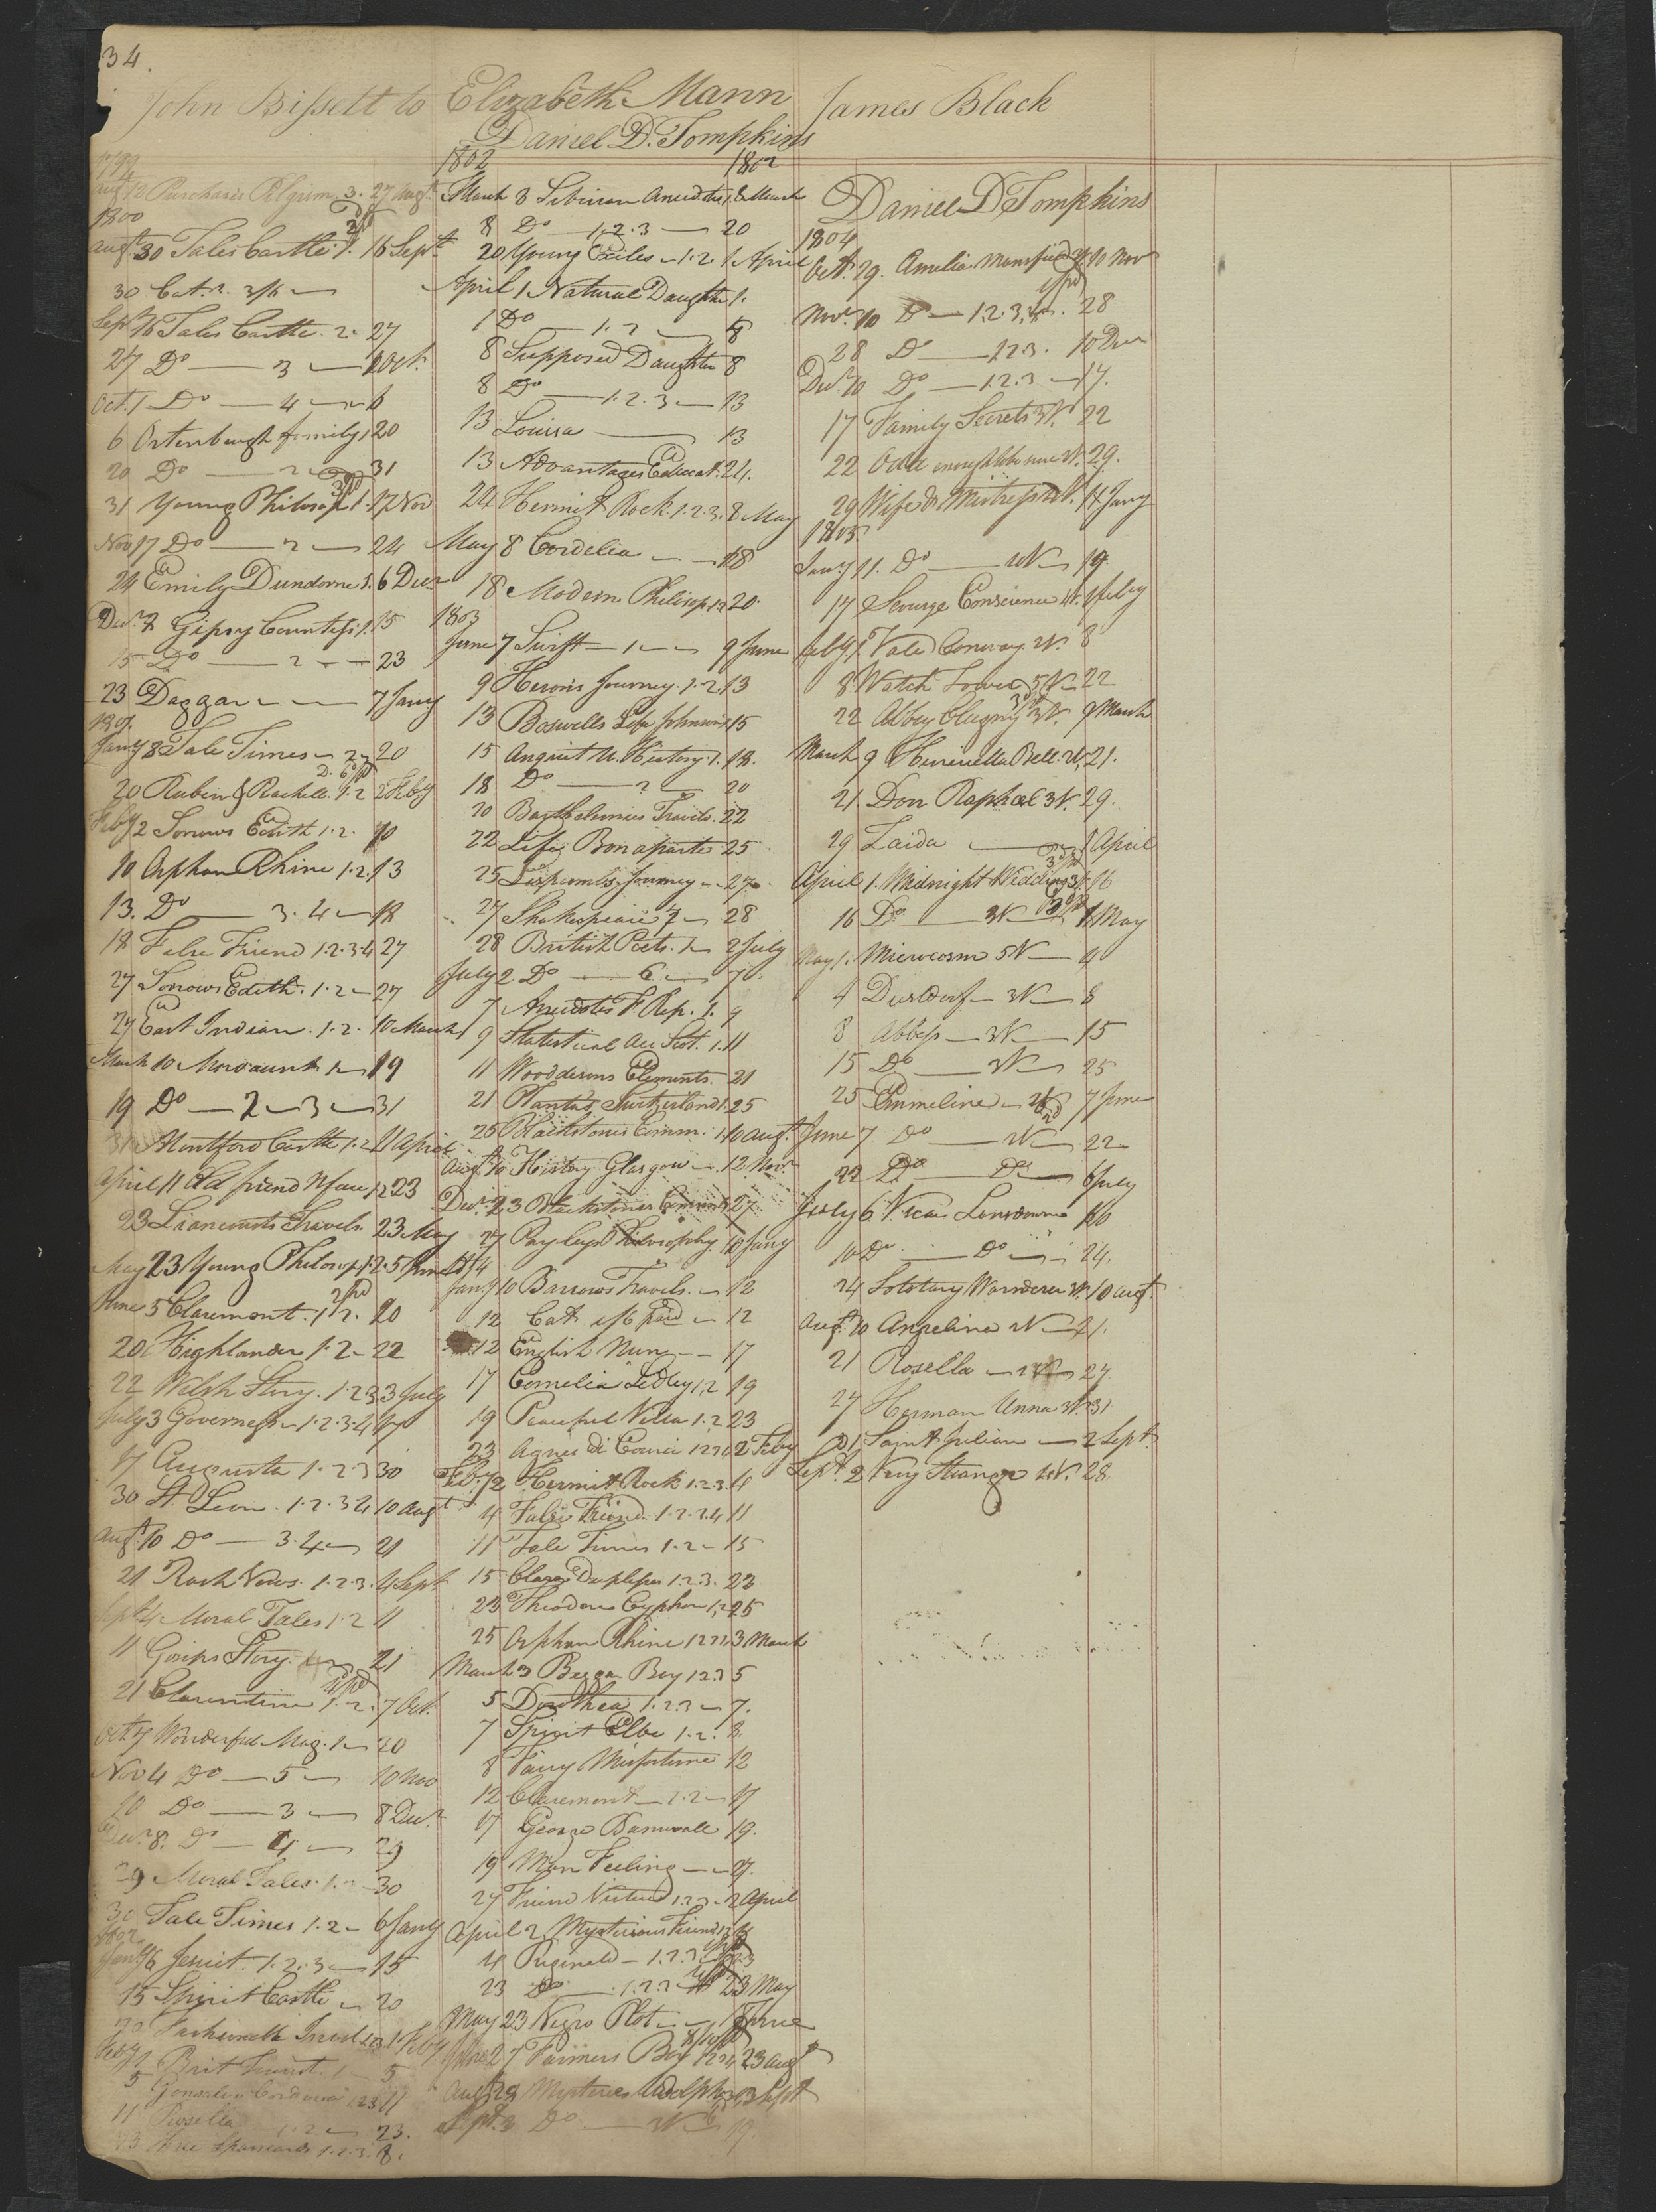 34.
John Bissett to Elizabeth Mann
Daniel D. Tompkins
James Black
Augt 12 Purchases Pilgrim. 3. 27 Augt
1800
Augt 30 Tales Castle 1. 16 Sept
30 Cat. 3/6
Sept 16 Tales Castle. 2. 27
27 Do — 3 — 1 Oct.
Oct. 1 Do — 4 — 6
6 Ortenburgh family 1 20
20 Do — 2 — 31
31 Young Philosop 1. 17 Nov
Nov 17 Do — 2 — 24
24 Emily Dundorne 1. 6 Decr
Decr 7 Gipsy Countess 1. 15
15 Do — 2 — 23
23 Daggar — 7 Jany
1801
Jany 8 Tale Times — 2 20
20 Ruben & Rachell. 1.2 2 Feby
Feby 2 Sorrows Edith 1.2. 10
10 Orphan Rhine 1.2. 13
13. Do — 3.4 — 18
18 False Friend 1.2.3.4 27
27 Sorrows Edith. 1.2 — 27
27 East Indian. 1.2. 10 March
March 10 Mordaunt 1 — 19
19 Do — 2 — 3 — 31
31 Montford Castle 1.2 11 April
April 11 Old friend N face 1 2 23
23 Liancourts Travels 23 May
May 23 Young Philosop 1.2. 5 June
June 5 Claremont. 1 2. 20
20 Highlander 1.2 — 22
22 Welsh Story. 1.2.3 3 July
July 3 Governess — 1.2.3.4 17
17 Augusta 1.2.3 30
30 St. Leon. 1.2.3 4 10 Augt
Augt 10 Do — 3.4 — 21
21 Rash Vows. 1.2.3. 4 Sept
Sept 4 Moral Tales 1.2 11
11 Gosips Story. 21
21 Clarentine 1.2. 7 Oct.
Oct 7 Wonderful Mag. 1 — 20
Nov 4 Do — 5 — 10 Nov
10 Do — 3 — 8 Decr
Decr 8. Do — 4 — 29
29 Moral Tales. 1.2 — 30
30 Tale Times 1.2 — 6 Jany
1802
Jany 6 Jesuit. 1.2.3 — 15
15 Spirit Castle — 20
20 Fashionable 1.2.3 1 Feby
Feby 1 Brit 1 — 5
5 Gonsalvo Cordova 1 2 3 11
11 Rosella 1.2 — 23.
23 Spaniards 1.2.3. 8.
1802 1802
March 3 Siberian Anecdotes 1. 8 March
8 Do — 1.2.3 — 20
20 Young Exiles — 1.2. 1 April
April 1 Natural Daughter 1.
1 Do — 1.2 — 8
8 Supposed Daughter 8
8 Do — 1.2.3 — 13
13 Louisa — 13
13 Advantages Educat. 24.
24 Hermit Rock. 1.2.3. 8 May
May 8 Cordelia — 18
18 Modern Philosop. 1 2 20.
1803
June 7 Swift — 1 — 9 June
9 Herons Journey. 1.2. 13
13 Boswells Life Johnson 1 15
15 Anquit U. History. 1. 18.
18 Do — 2 — 20
20 Barthelemies Travels. 22
22 Life Bonaparte 25
25 Lipscombs Journey — 27.
27 Shakespeare 7 — 28
28 British Poets. 1 — 2 July
July 2 Do — 6 — 7.
7 Anecdotes F. Rep. 1. 9
9 Statistical Acc Scot. 1. 11
11 Wooddesons Elements. 21
21 Plantas Switzerland 1. 25
25 Blackstones Comm. 1. 10 Augt.
Augt 10 History Glasgow — 12 Novr
Decr 23 Blackstones Comment 1 27
27 Payleys Philosophy 10 Jany
1804
Jany 10 Barrows Travels. — 12
12 Cat 1/6 paid — 12
12 English Nun — 17
17 Cornelia Sedley 1, 2 19
19 Peaceful Villa 1.2 23
23 Agnes di Courci 1 2 3 4 2 Feby
Feby 2 Hermit Rock 1.2.3. 4
4 False Friend. 1.2.3.4 11
11 Tale Times 1.2 — 15
15 Clara Duplesses 1.2.3. 23
23 Theodore Cyphon 1, 2 25
25 Orphan Rhine 1 2 3 4 3 March
March 3 Beggar Boy 1 2 3 5
5 Dorothea 1.2.3 — 7.
7 Spirit Elbe 1.2. 8
8 Fairy Misfortune 12
12 Claremont — 1.2 — 17
17 George Barnwall 19.
19 Man Feeling — 27.
27 Friend Virtue 1.2.3 — 2 April
April 2 Mysterious Friend 1 2 4
4 Reginald — 1.2.3 23
23 Do — 1.2.3 23 May
May 23 Negro Plot — 1 June
June 27 Farmers Boy 1 2 3 4 23 Augt
Augt 23 Mysteries Udolpho 3 Sept
Sept. 3 Do — 19.
Daniel D Tompkins
1804
Oct. 29. Amelia Mansfield 10 Nov
Novr 10 Do — 1.2.3.4. 28
28 Do — 1 2 3. 10 Decr
Decr 10 Do — 1.2.3 — 17.
17 Family Secrets 3 V. 22
22 Odd enough to be sure 2 V. 29.
29 Wife & Mistress 2 V. 11 Jany
1805
Jany 11. Do — 2 V — 19.
17 Scourge Conscience 4 V. 1 Feby
Feby 1. Vale Conway 2 V. 8
8 Watch Tower 5 V — 22
22 Abbey Clugny 3 V. 9 March
March 9 Henrietta Bell. 2 V, 21.
21 Don Raphael 3 V. 29.
29 Zaida — 1 April
April 1. Midnight Wedding 3 V. 16
16 Do — 3 V — 1 May
May 1. Microcosm 5 V — 4
4 Dusldorf — 3 V — 8
8 Abbess — 3 V — 15
15 Do — 2 V — 25
25 Emmeline — 2 V 7 June
June 7 Do — 2 V — 22
22 Do — Do — 6 July
July 6 Vicar Lansdowne 10
10 Do — Do — 24.
24 Solotary Wanderer 3 V. 10 Augt
Augt 10 Angelina 2 V — 21.
21 Rosella — 2 V — 27
27 Herman Unna 3 V. 31
31 Saint Julian — 2 Sept.
Sept 2 Very Strange 2 V. 28